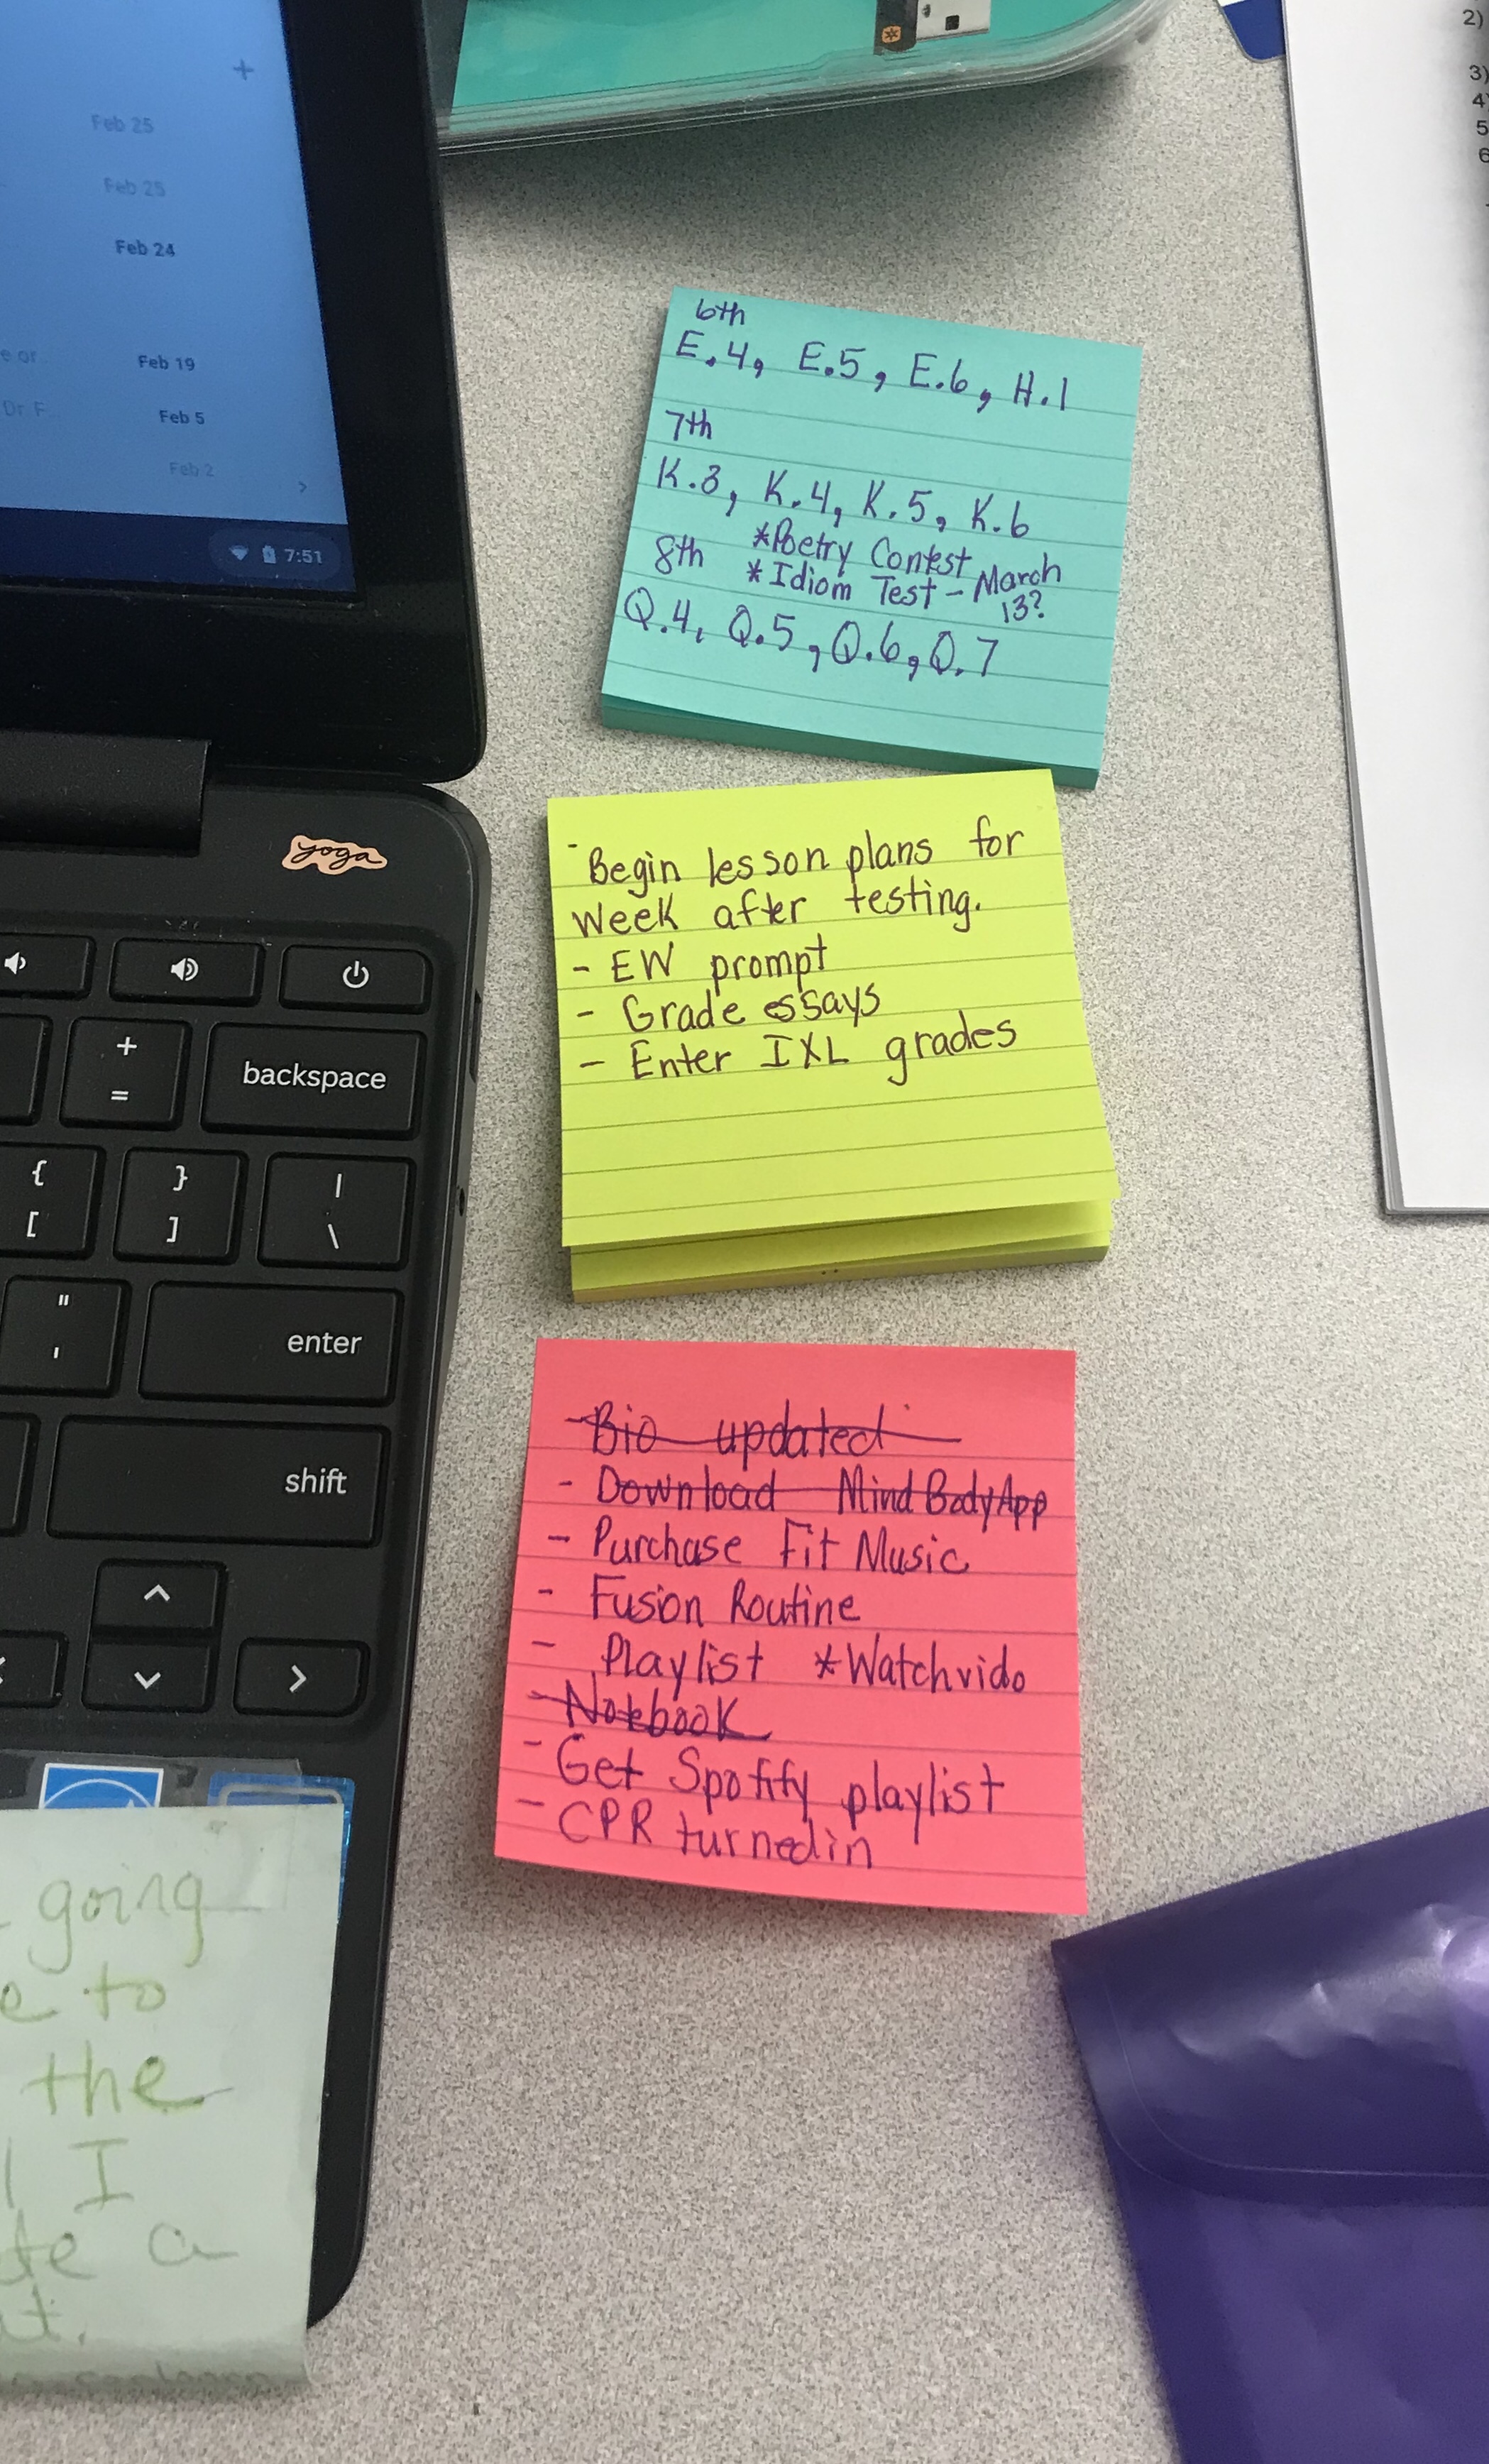 +
Feb 25
Feb 25
Feb 24
e or
Feb 19
Dr. F...
Feb 5
Feb 2
>
7:51
2)
3)
4
5
6
6th
E.4, E.5, E.6, H.1
7th
K.3, K.4, K.5, K.6
*Poetry Contest
8th *Idiom Test - March
13?
Q.4, Q.5, Q.6, Q.7
- Begin lesson plans for
week after testing.
- EW prompt
- Grade essays
- Enter IXL grades
- Bio updated
- Download MindBodyApp
- Purchase Fit Music
- Fusion Routine
- Playlist *Watch vido
- Notebook
- Get Spotify playlist
- CPR turned in
yoga
+
=
backspace
{
[
}
]
|
\
"
'
enter
shift
going
e to
the
I
te a
t.